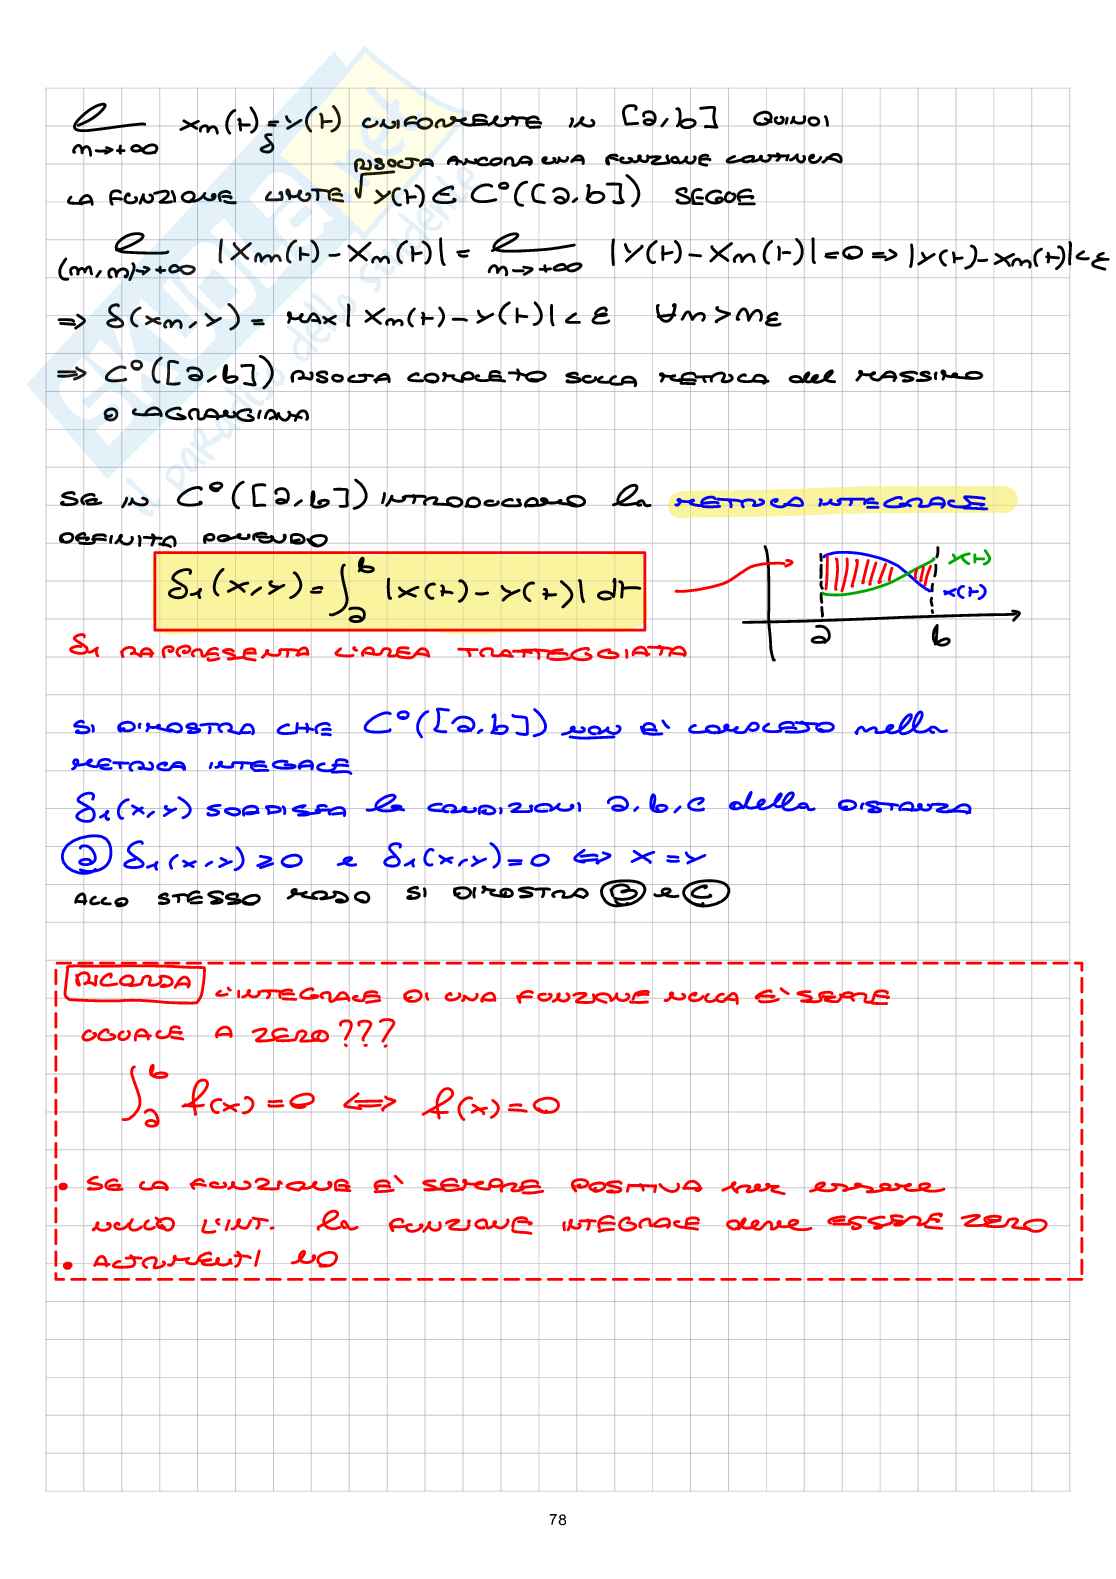 lim xn(t) =δ y(t) UNIFORMEMENTE IN [a,b] QUINDI
n→+∞
RISULTA ANCORA UNA FUNZIONE CONTINUA
LA FUNZIONE LIMITE √ y(t) ∈ C°([a,b]) SEGUE
lim |xm(t) - xn(t)| = lim |y(t) - xn(t)| = 0 => |y(t) - xn(t)| < ε
(m,n)→+∞ n→+∞
=> δ(xn,y) = MAX| xn(t) - y(t)| < ε ∀n > nε
=> C°([a,b]) RISULTA COMPLETO SULLA METRICA del MASSIMO
O LAGRANGIANA
SE IN C°([a,b]) INTRODUCIAMO la METRICA INTEGRALE
DEFINITA PONENDO
δ1(x,y) = ∫ₐᵇ |x(t) - y(t)| dt
x(t)
x(t)
a b
δ1 RAPPRESENTA L'AREA TRATTEGGIATA
SI DIMOSTRA CHE C°([a,b]) NON E' COMPLETO nella
METRICA INTEGALE
δ1(x,y) SODDISFA le CONDIZIONI a,b,c della DISTANZA
a δ1(x,y) ≥ 0 e δ1(x,y) = 0 <=> x = y
ALLO STESSO MODO SI DIMOSTRA B e C
RICORDA L'INTEGRALE DI UNA FUNZIONE NULLA E' SEMPRE
UGUALE A ZERO???
∫ₐᵇ f(x) = 0 <=> f(x) = 0
• SE LA FUNZIONE E' SEMPRE POSITIVA per essere
NULLO L'INT. la FUNZIONE INTEGRALE deve ESSERE ZERO
• ALTRIMENTI NO
78
SKUOLA.net
il paradiso dello studente